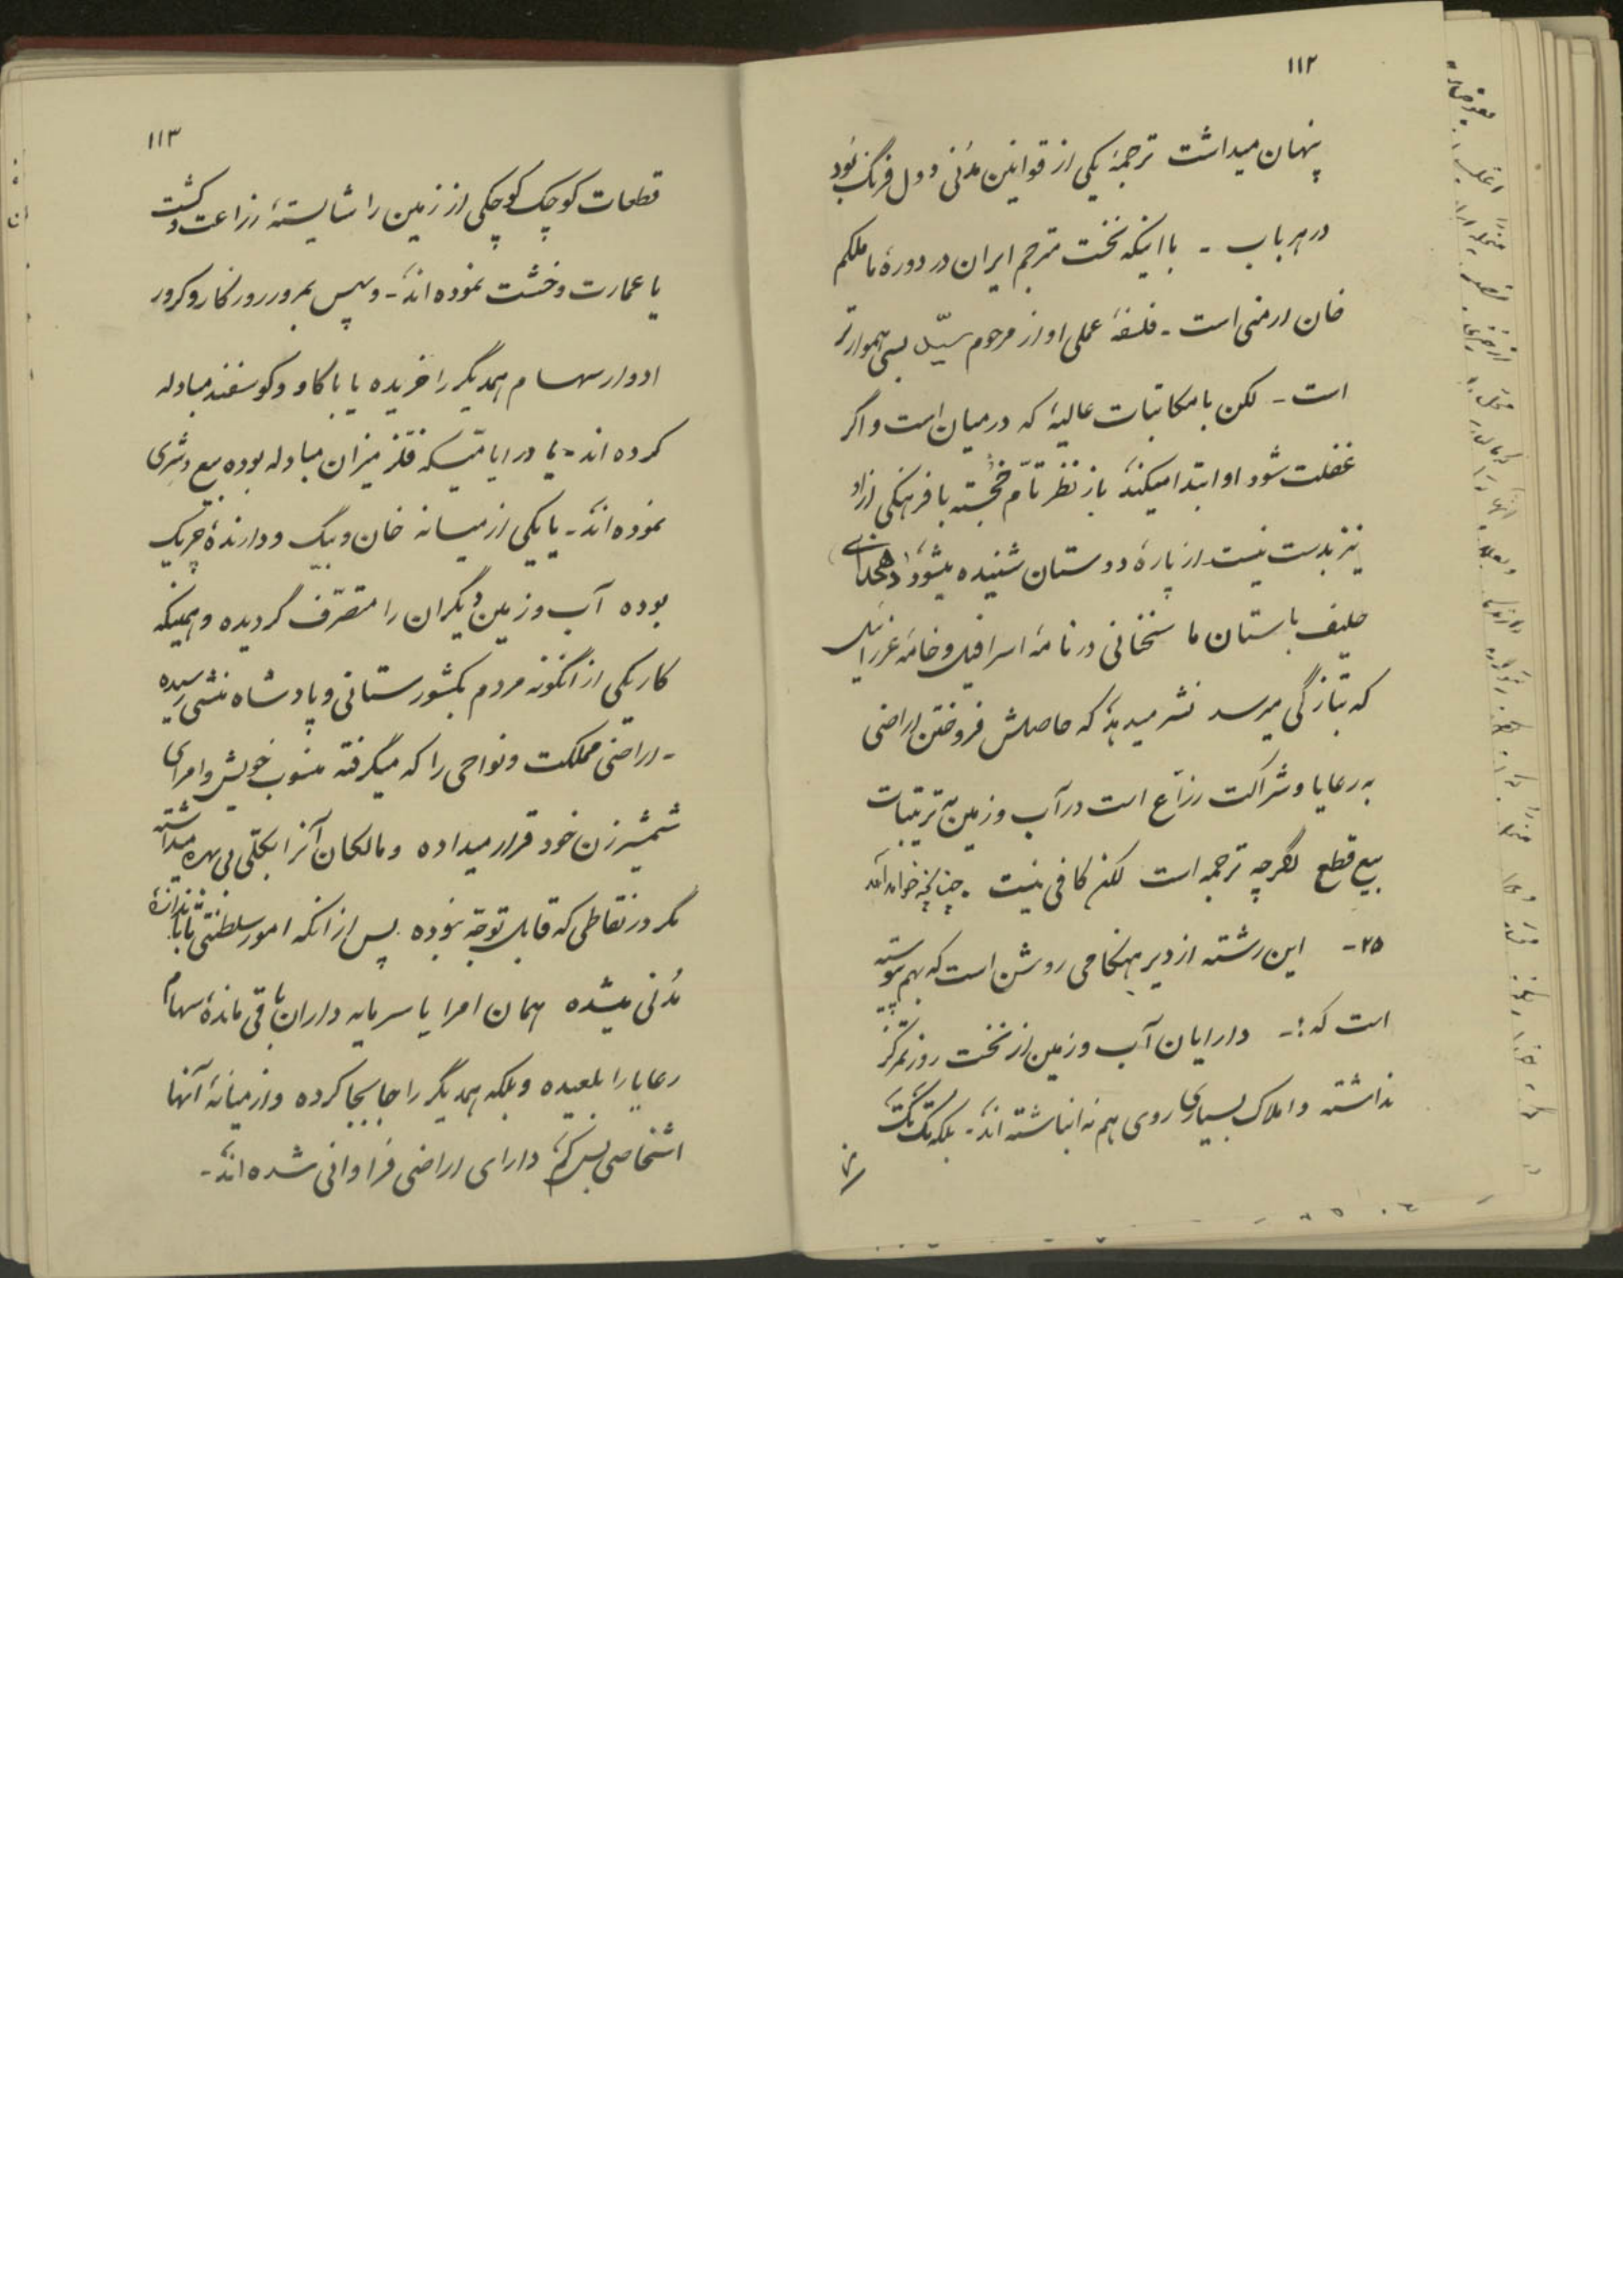 ۱۱۲
پنهان میداشت ترجمهٔ یکی از قوانین مدنی دول فرنگ بود
در هر باب - با اینکه نخست مترجم ایران در دورهٔ ما ملکم
خان ارمنی است - فلسفهٔ عملی او از مرحوم سیّد بسی هموارتر
است - لکن با مکاتبات عالیهٔ که در میان است و اگر
غفلت شود او ابتدا میکند باز نظر تامّ خجسته با فرهنگی از او
نیز بدست نیست از پارهٔ دوستان شنیده میشود (دهخدای)
حلیف باستان ما سخنانی در نامهٔ اسرافیل و خامهٔ عزرائیل
که بتازگی میرسد نشر میدهد که حاصلش فروختن اراضی
به رعایا و شراکت زرّاع است در آب و زمین به ترتیبات
بیع قطع اگرچه ترجمه است لکن کافی نیست - چنانچه خواهد آمد
۲۵- این رشته از دیر هنگامی روشن است که بهم پیوسته
است که :- دارایان آب و زمین از نخست روز تمرکز
نداشته و املاک بسیاری روی هم نه انباشته اند - بلکه تک تک
۱۱۳
قطعات کوچک کوچکی از زمین را شایستهٔ زراعت و کشت
یا عمارت و خشت نموده اند - و سپس بمرور روزگار و کرور
ادوار سهام همدیگر را خریده یا با گاو و گوسفند مبادله
کرده اند - یا در ایامیکه فلز میزان مبادله بوده بیع و شری
نموده اند - یا یکی از میانه خان و بیگ و دارندهٔ چریک
بوده آب و زمین دیگران را متصرّف گردیده و همینکه
کار یکی از آنگونه مردم بکشورستانی و پادشاه منشی رسیده
- اراضی مملکت و نواحی را که میگرفته منسوب خویش و امرای
شمشیر زن خود قرار میداده و مالکان آنرا بکلّی بی بهره میداشته
مگر در نقاطی که قابل توجّه نبوده پس از آنکه امور سلطنتی تا باندازهٔ
مدنی میشده همان امرا یا سرمایه داران باقی ماندهٔ سهام
رعایا را بلعیده و بلکه همدیگر را جابجا کرده و از میانهٔ آنها
اشخاصی بس کم دارای اراضی فراوانی شده اند -